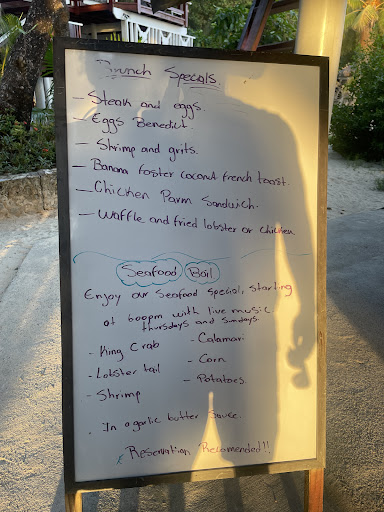 Brunch Specials
- Steak and eggs.
- Eggs Benedict.
- Shrimp and grits.
- Banana foster coconut french toast.
- Chicken Parm Sandwich.
- Waffle and fried lobster or chicken
Seafood Boil
Enjoy our seafood special, starting
at 600pm with live music
thursdays and Sundays.
- King Crab
- Lobster tail
- Shrimp
- Calamari
- Corn
- Potatoes.
. In a garlic butter sauce.
* Reservation Recomended!!